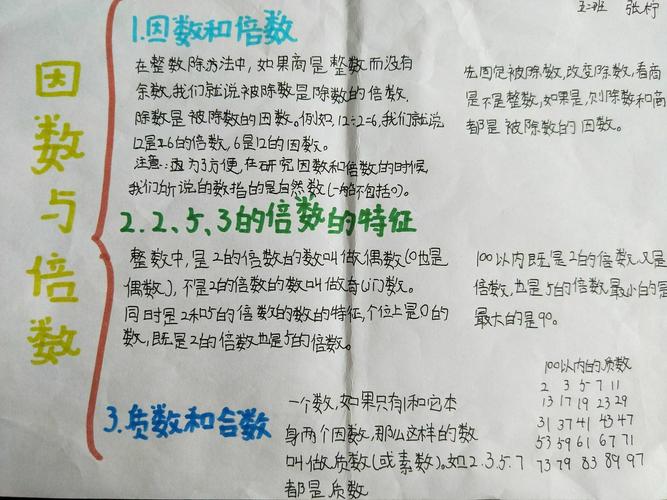 五二班 张柠
因数与倍数
1.因数和倍数
在整数除方法中,如果商是整数而没有
余数,我们就说被除数是除数的倍数,
除数是被除数的因数。例如,12÷2=6,我们就说
12是6的倍数,6是12的因数。
注意:为了方便,在研究因数和倍数的时候,
我们所说的数指的是自然数(一般不包括0)。
先固定被除数,改变除数,看商
是不是整数,如果是,则除数和商
都是被除数的因数。
2.2、5、3的倍数的特征
整数中,是2的倍数的数叫做偶数(0也是
偶数),不是2的倍数的数叫做奇(jī)数。
同时是2和5的倍数的数的特征,个位上是0的
数,既是2的倍数也是5的倍数。
100以内既是2的倍数,又是
倍数,也是5的倍数最小的是
最大的是90。
3.质数和合数
一个数,如果只有1和它本
身两个因数,那么这样的数
叫做质数(或素数)。如2.3.5.7
都是质数
100以内的质数
2 3 5 7 11
13 17 19 23 29
31 37 41 43 47
53 59 61 67 71
73 79 83 89 97